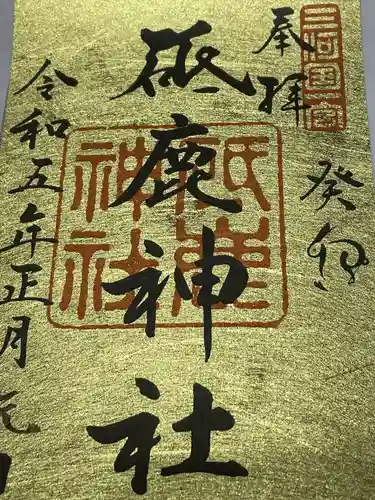 三河國一宮
奉拝
癸卯
砥鹿神社
砥鹿神社
令和五年正月元日